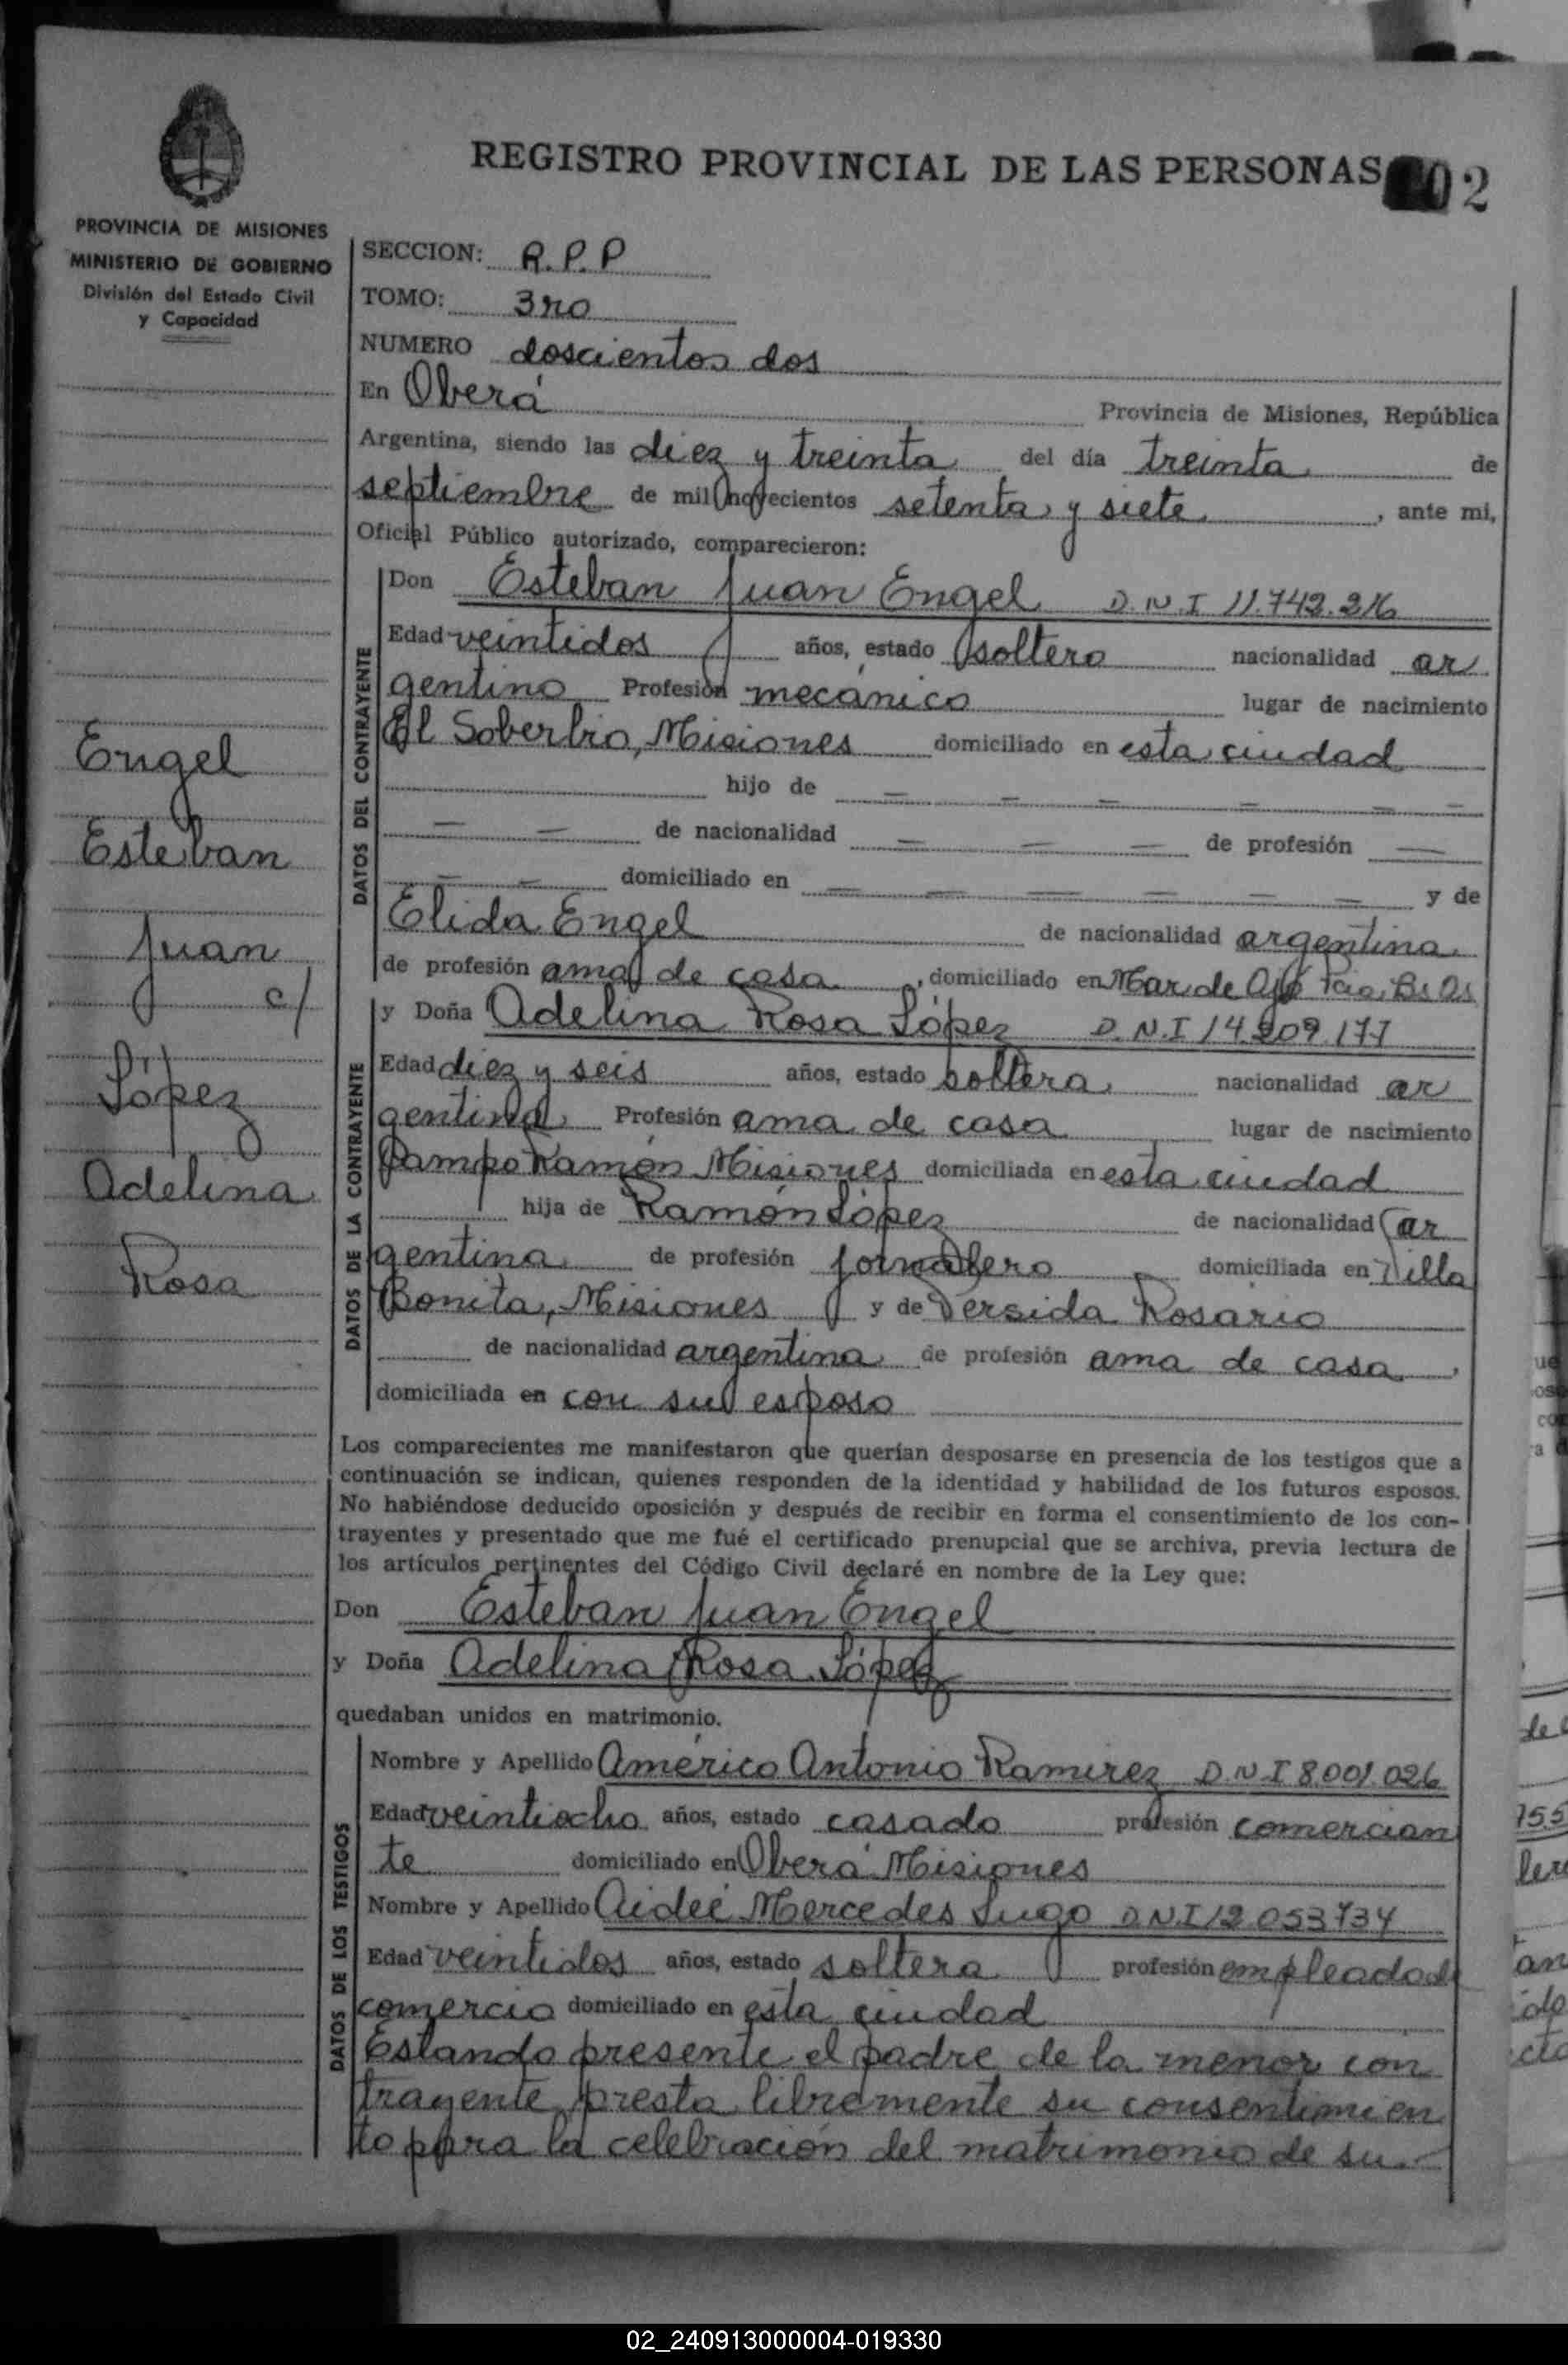 REGISTRO PROVINCIAL DE LAS PERSONAS 02
PROVINCIA DE MISIONES
MINISTERIO DE GOBIERNO
División del Estado Civil
y Capacidad
SECCION: R.P.P
TOMO: 3ro
NUMERO doscientos dos
En Oberá Provincia de Misiones, República
Argentina, siendo las diez y treinta del día treinta de
septiembre de mil novecientos setenta y siete, ante mi,
Oficial Público autorizado, comparecieron:
DATOS DEL CONTRAYENTE
Don Esteban Juan Engel D.N.I 11.742.216
Edad veintidos años, estado soltero nacionalidad ar
gentino Profesión mecánico lugar de nacimiento
El Soberbio, Misiones domiciliado en esta ciudad
hijo de — — — — — —
— — de nacionalidad — — — de profesión —
— — domiciliado en — — — — — — y de
Elida Engel de nacionalidad argentina
de profesión ama de casa, domiciliado en Mar de Ajó Pcia. Bs As
Engel
Esteban
Juan
c/
López
Adelina
Rosa
DATOS DE LA CONTRAYENTE
y Doña Adelina Rosa López D.N.I 14.209.177
Edad diez y seis años, estado soltera nacionalidad ar
gentina Profesión ama de casa lugar de nacimiento
Campo Ramón Misiones domiciliada en esta ciudad
hija de Ramón López de nacionalidad ar
gentina de profesión jornalero domiciliada en Villa
Bonita, Misiones y de Persida Rosario
de nacionalidad argentina de profesión ama de casa,
domiciliada en con su esposo
Los comparecientes me manifestaron que querían desposarse en presencia de los testigos que a
continuación se indican, quienes responden de la identidad y habilidad de los futuros esposos.
No habiéndose deducido oposición y después de recibir en forma el consentimiento de los con-
trayentes y presentado que me fué el certificado prenupcial que se archiva, previa lectura de
los artículos pertinentes del Código Civil declaré en nombre de la Ley que:
Don Esteban Juan Engel
y Doña Adelina Rosa López
quedaban unidos en matrimonio.
DATOS DE LOS TESTIGOS
Nombre y Apellido Américo Antonio Ramirez D.N.I 8.001.026
Edad veintiocho años, estado casado profesión comercian
te domiciliado en Oberá Misiones
Nombre y Apellido Aideé Mercedes Lugo D.N.I 12 053734
Edad veintidos años, estado soltera profesión empleada d
comercio domiciliado en esta ciudad
Estando presente el padre de la menor con
trayente presta libremente su consentimien
to para la celebración del matrimonio de su
02_240913000004-019330